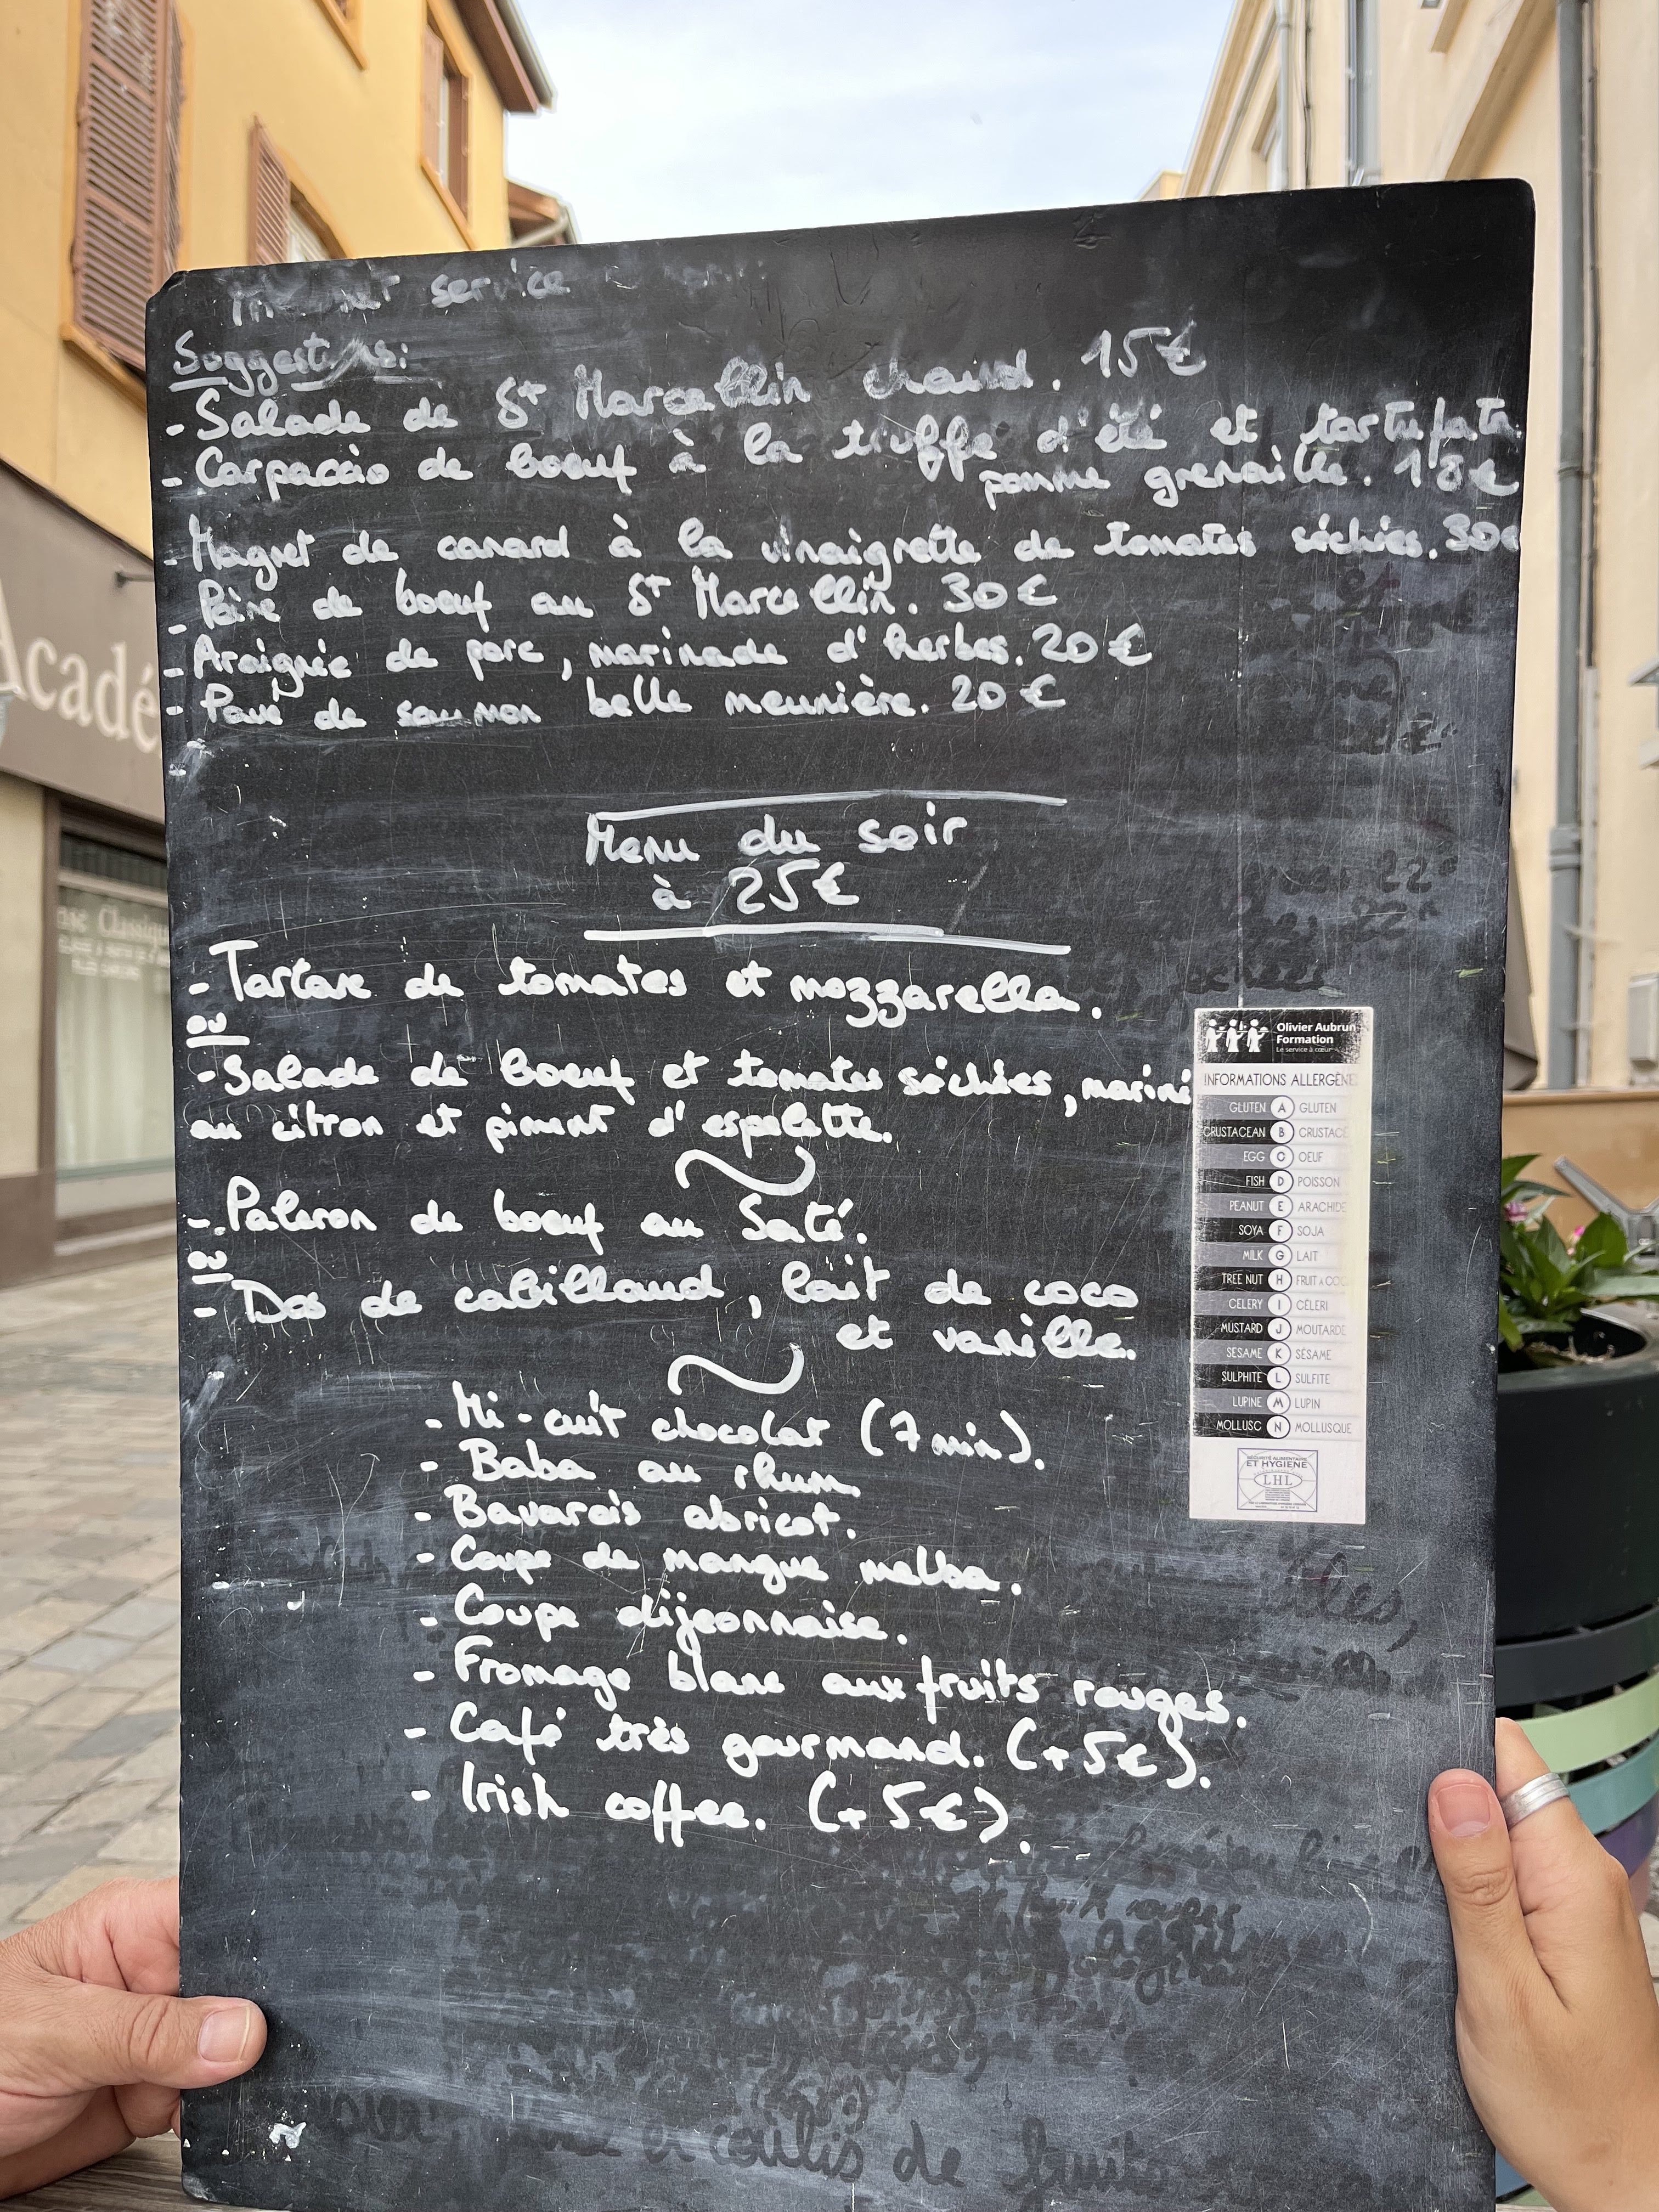 service
Suggestions:
- Salade de St Marcellin chaud. 15€
- Carpaccio de boeuf à la truffe d'été et tartufata
pomme grenaille. 18€
- Magret de canard à la vinaigrette de tomates séchées. 30€
- Poire de boeuf au St Marcellin. 30€
- Araignée de porc, marinade d'herbes. 20€
- Pavé de saumon belle meunière. 20€
Menu du soir
à 25€
- Tartare de tomates et mozzarella.
ou
- Salade de boeuf et tomates séchées, mariné
au citron et piment d'espelette.
- Paleron de boeuf au Saté.
ou
- Dos de cabillaud, lait de coco
et vanille.
- Mi-cuit chocolat (7 min).
- Baba au rhum.
- Bavarois abricot.
- Coupe de mangue melba.
- Coupe dijeonnaise.
- Fromage blanc aux fruits rouges.
- Café très gourmand. (+5€).
- Irish coffee. (+5€).
Olivier Aubrun
Formation
Le service à cœur
INFORMATIONS ALLERGÈNE
GLUTEN A GLUTEN
CRUSTACEAN B CRUSTACÉ
EGG C OEUF
FISH D POISSON
PEANUT E ARACHIDE
SOYA F SOJA
MILK G LAIT
TREE NUT H FRUIT A COQ
CELERY I CÉLERI
MUSTARD J MOUTARDE
SESAME K SÉSAME
SULPHITE L SULFITE
LUPINE M LUPIN
MOLLUSC N MOLLUSQUE
SÉCURITÉ ALIMENTAIRE
ET HYGIENE
LHL
Acadé
Classiqu
coulis de fruits